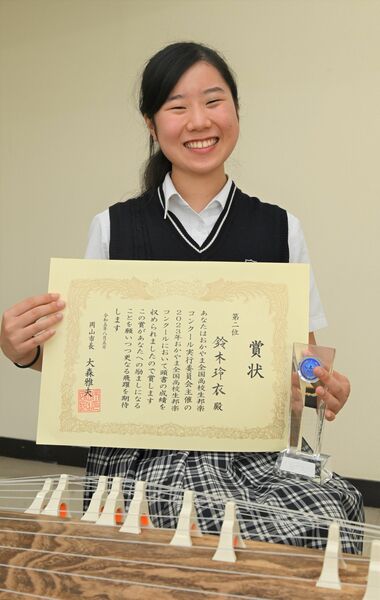 賞状
第二位
鈴木玲衣 殿
あなたはおかやま全国高校生邦楽
コンクール実行委員会主催の
2023年おかやま全国高校生邦楽
コンクールにおいて頭書の成績を
収められましたので賞します
この賞があなたへの励ましになる
ことを願いつつ更なる飛躍を期待
します
令和五年八月五日
岡山市長 大森雅夫